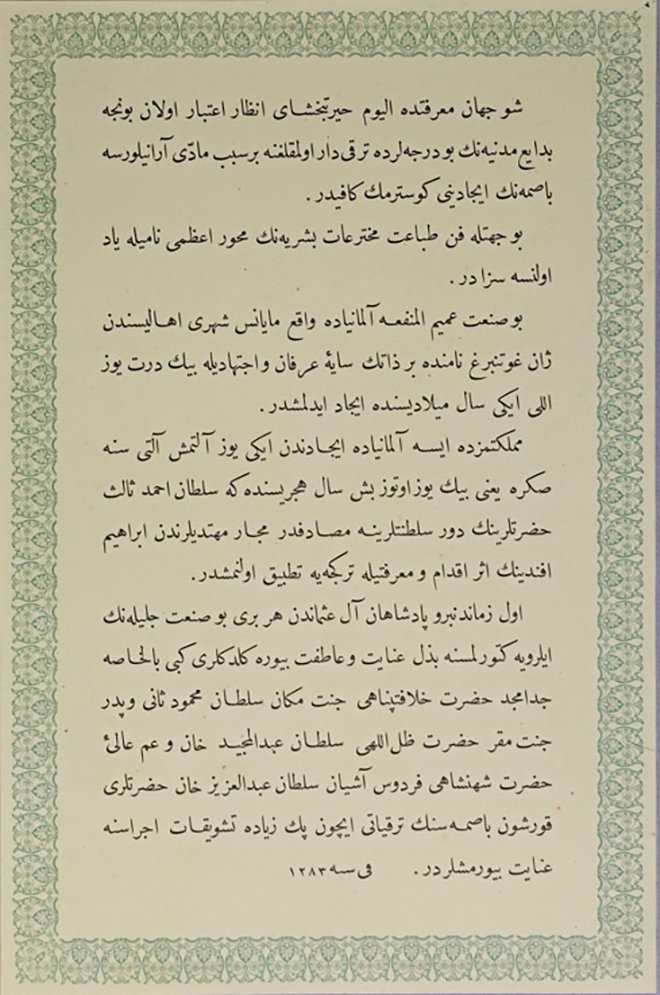 شو جهان معرفتده اليوم حيرتبخشاى انظار اعتبار اولان بونجه
بدايع مدنيه‌نك بو درجه‌لرده ترقى‌دار اولمقلغنه بر سبب مادّى آرانيلورسه
باصمه‌نك ايجادينى كوسترمك كافيدر .
بو جهتله فن طباعت مخترعات بشريه‌نك محور اعظمى ناميله ياد
اولنسه سزا در .
بو صنعت عميم المنفعه آلمانياده واقع مايانس شهرى اهاليسندن
ژان غوتنبرغ نامنده بر ذاتك سايۀ عرفان و اجتهاديله بيك درت يوز
اللى ايكى سال ميلاديسنده ايجاد ايدلمشدر .
مملكتمزده ايسه آلمانياده ايجادندن ايكى يوز آلتمش آلتى سنه
صكره يعنى بيك يوز اوتوز بش سال هجريسنده كه سلطان احمد ثالث
حضرتلرينك دور سلطنتلرينه مصادفدر مجار مهتديلرندن ابراهيم
افندينك اثر اقدام و معرفتيله تركجه‌يه تطبيق اولنمشدر .
اول زماندنبرو پادشاهان آل عثماندن هر برى بو صنعت جليله‌نك
ايلرويه كتورلمسنه بذل عنايت و عاطفت بيوره كلدكلرى كبى بالخاصه
جد امجد حضرت خلافتپناهى جنت مكان سلطان محمود ثانى و پدر
جنت مقر حضرت ظل اللهى سلطان عبدالمجيد خان و عم عالئ
حضرت شهنشاهى فردوس آشيان سلطان عبدالعزيز خان حضرتلرى
قورشون باصمه‌سنك ترقياتى ايچون پك زياده تشويقات اجراسنه
عنايت بيورمشلردر . فى سنه ١٢٨٣